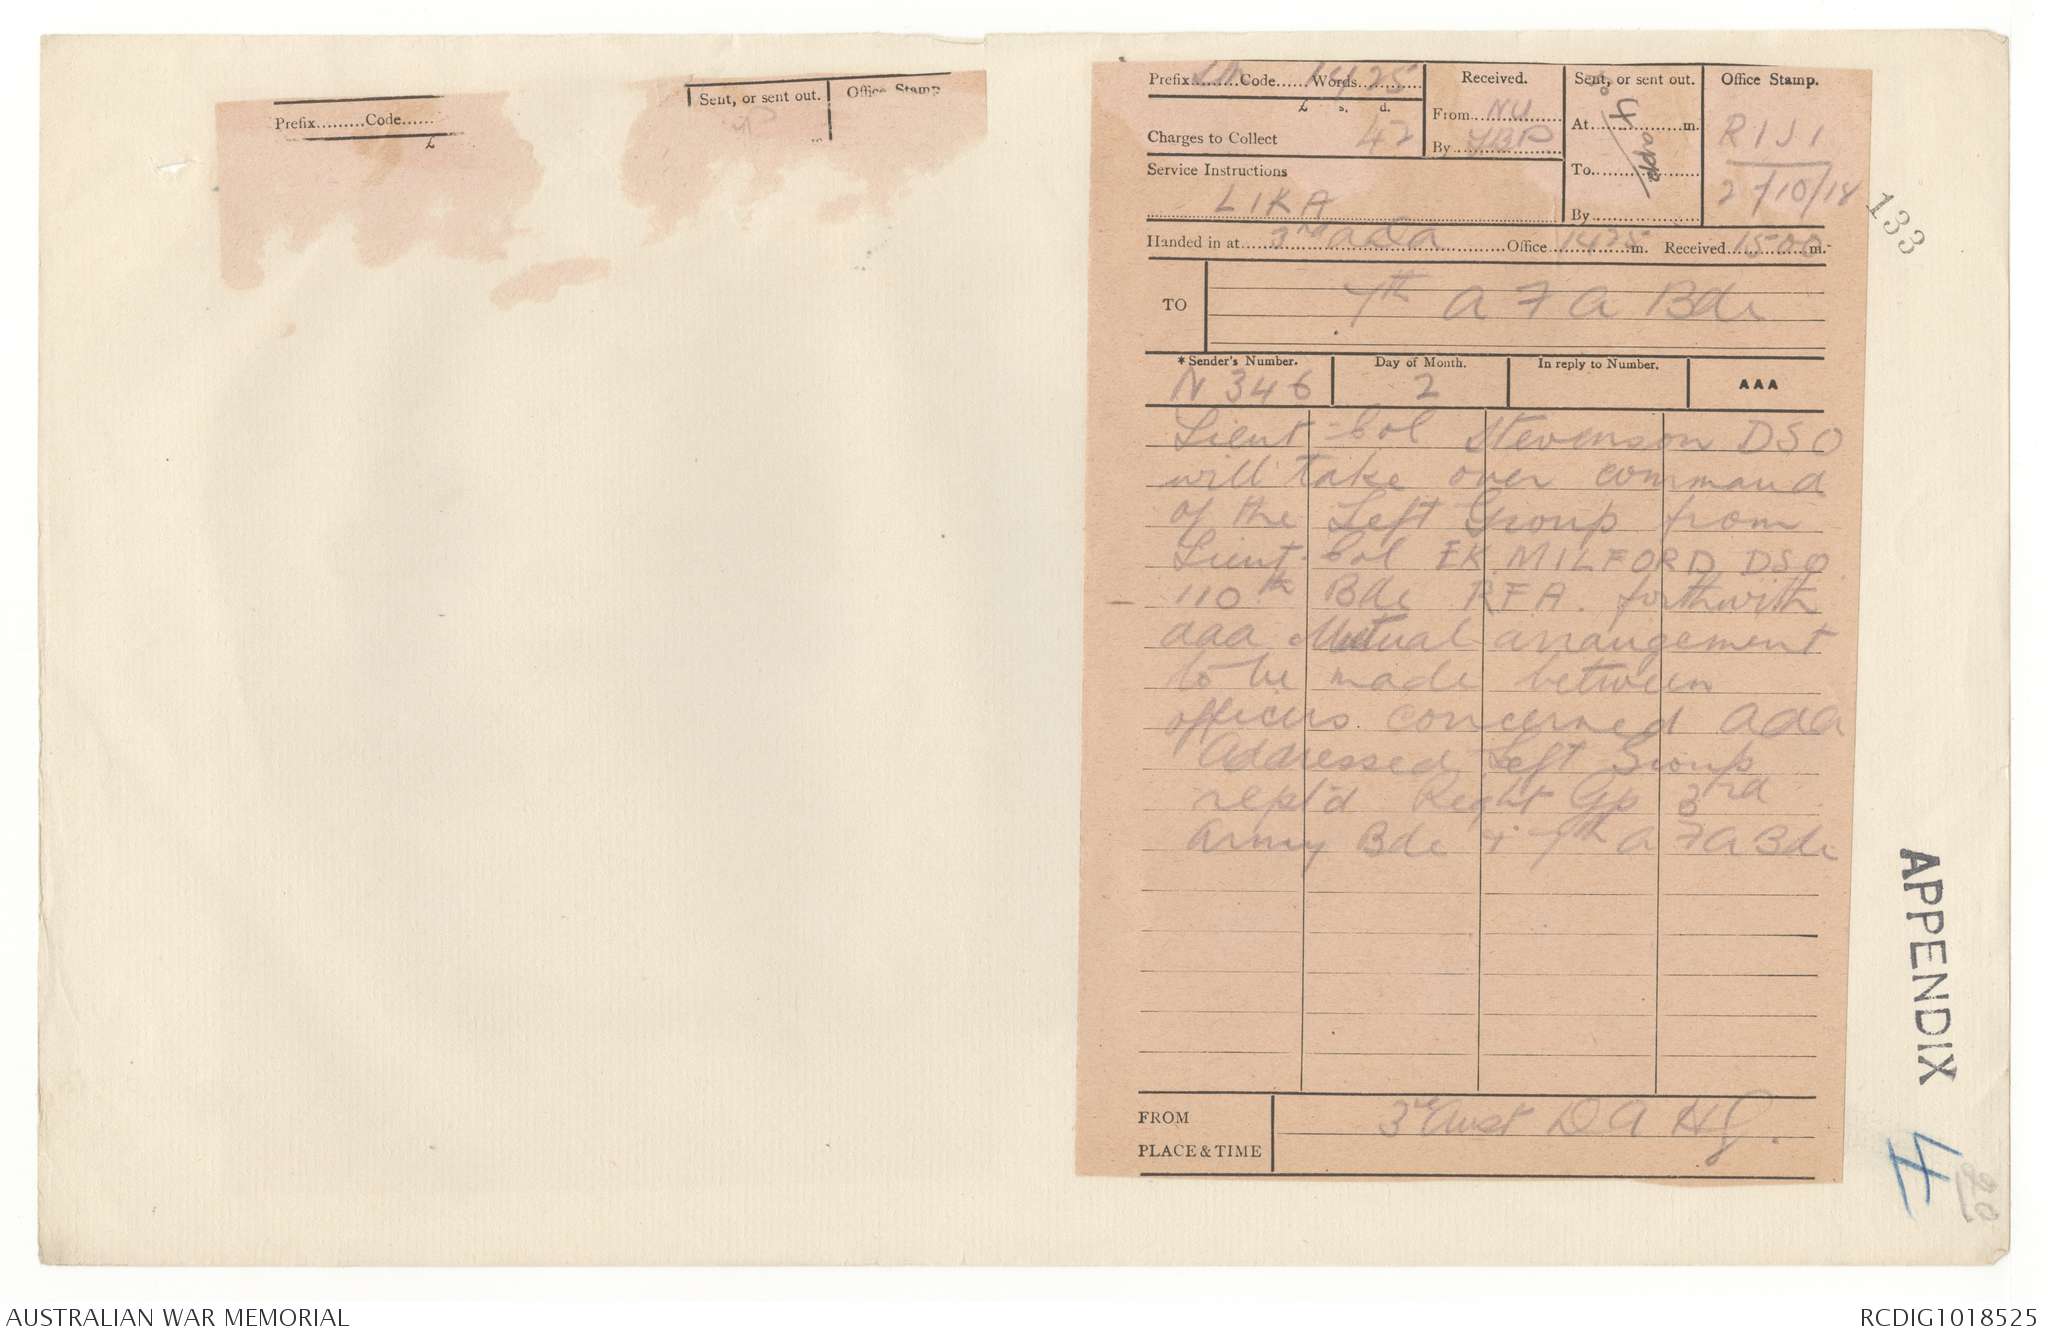 Prefix.........Code......
£
Sent, or sent out.
Office Stamp
m
Prefix SM Code...... Words 1425
£ s. d.
Charges to Collect 42
Service Instructions
LIKA
Received.
From NU
By YBP
Sent, or sent out.
At..................m.
To..................
By..................
4 app
Office Stamp.
RIJI
2/10/18
133
Handed in at 3rd ADA Office 1425 m. Received 1500 m.
TO
7th A F A Bde
* Sender's Number.
Day of Month.
In reply to Number.
AAA
N 346
2
Lieut-Col Stevenson DSO
will take over command
of the Left Group from
Lieut-Col EK MILFORD DSO
110th Bde RFA. forthwith
aaa Mutual arrangement
to be made between
officers concerned aaa
Addressed Left Group
rept'd Right Gp 3rd
Army Bde + 7th A F A Bde
FROM
PLACE & TIME
3rd Aust D A HQ.
APPENDIX
4
20
AUSTRALIAN WAR MEMORIAL
RCDIG1018525